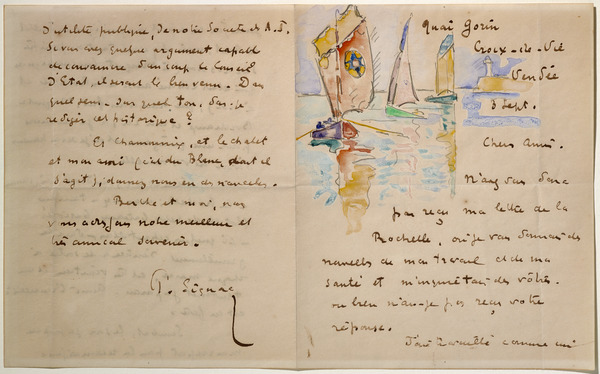 d'utilité publique, de notre Société des A. I.
Si vous avez quelque argument capable
de convaincre d'un coup le Conseil
d'Etat, il serait le bienvenu. Dans
quel sens - dans quel ton, dois-je
rédiger cet historique ?
Et Chamounix, et le chalet
et mon ami (c'est du Blanc dont il
s'agit); donnez nous en des nouvelles.
Berthe et moi, nous
vous adressons notre meilleur et
très amical souvenir.
P. Signac
Quai Gorin
Croix-de-Vie
Vendée
3 Sept.
Chers Amis.
N'avez vous donc
pas reçu ma lettre de la
Rochelle, où je vous donnais des
nouvelles de mon travail et de ma
santé et m'inquiétais des vôtres.
ou bien n'ai-je pas reçu votre
réponse.
J'ai travaillé comme un